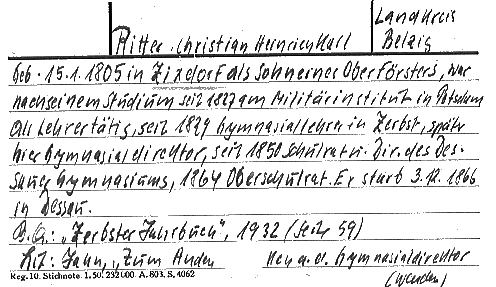 Landkreis
Ritter, Christian Heinrich Karl Belzig
geb. 15.1.1805 in Zixdorf als Sohn eines Oberförsters, war
nach seinem Studium seit 1827 am Militärinstitut in Potsdam
als Lehrer tätig, seit 1829 Gymnasiallehrer in Zerbst, später
hier Gymnasialdirektor, seit 1850 Schulrat u. Dir. des Des-
sauer Gymnasiums, 1864 Oberschulrat. Er starb 3.12.1866
in Dessau.
B.Q.: „Zerbster Jahrbuch", 1932 (Seite 59)
Lit: Jahn, „Zum Anden
ken a. d. Gymnasialdirektor
Reg. 10. Stichnote. 1. 50. 232000. A. 803. S. 4062
(wenden)